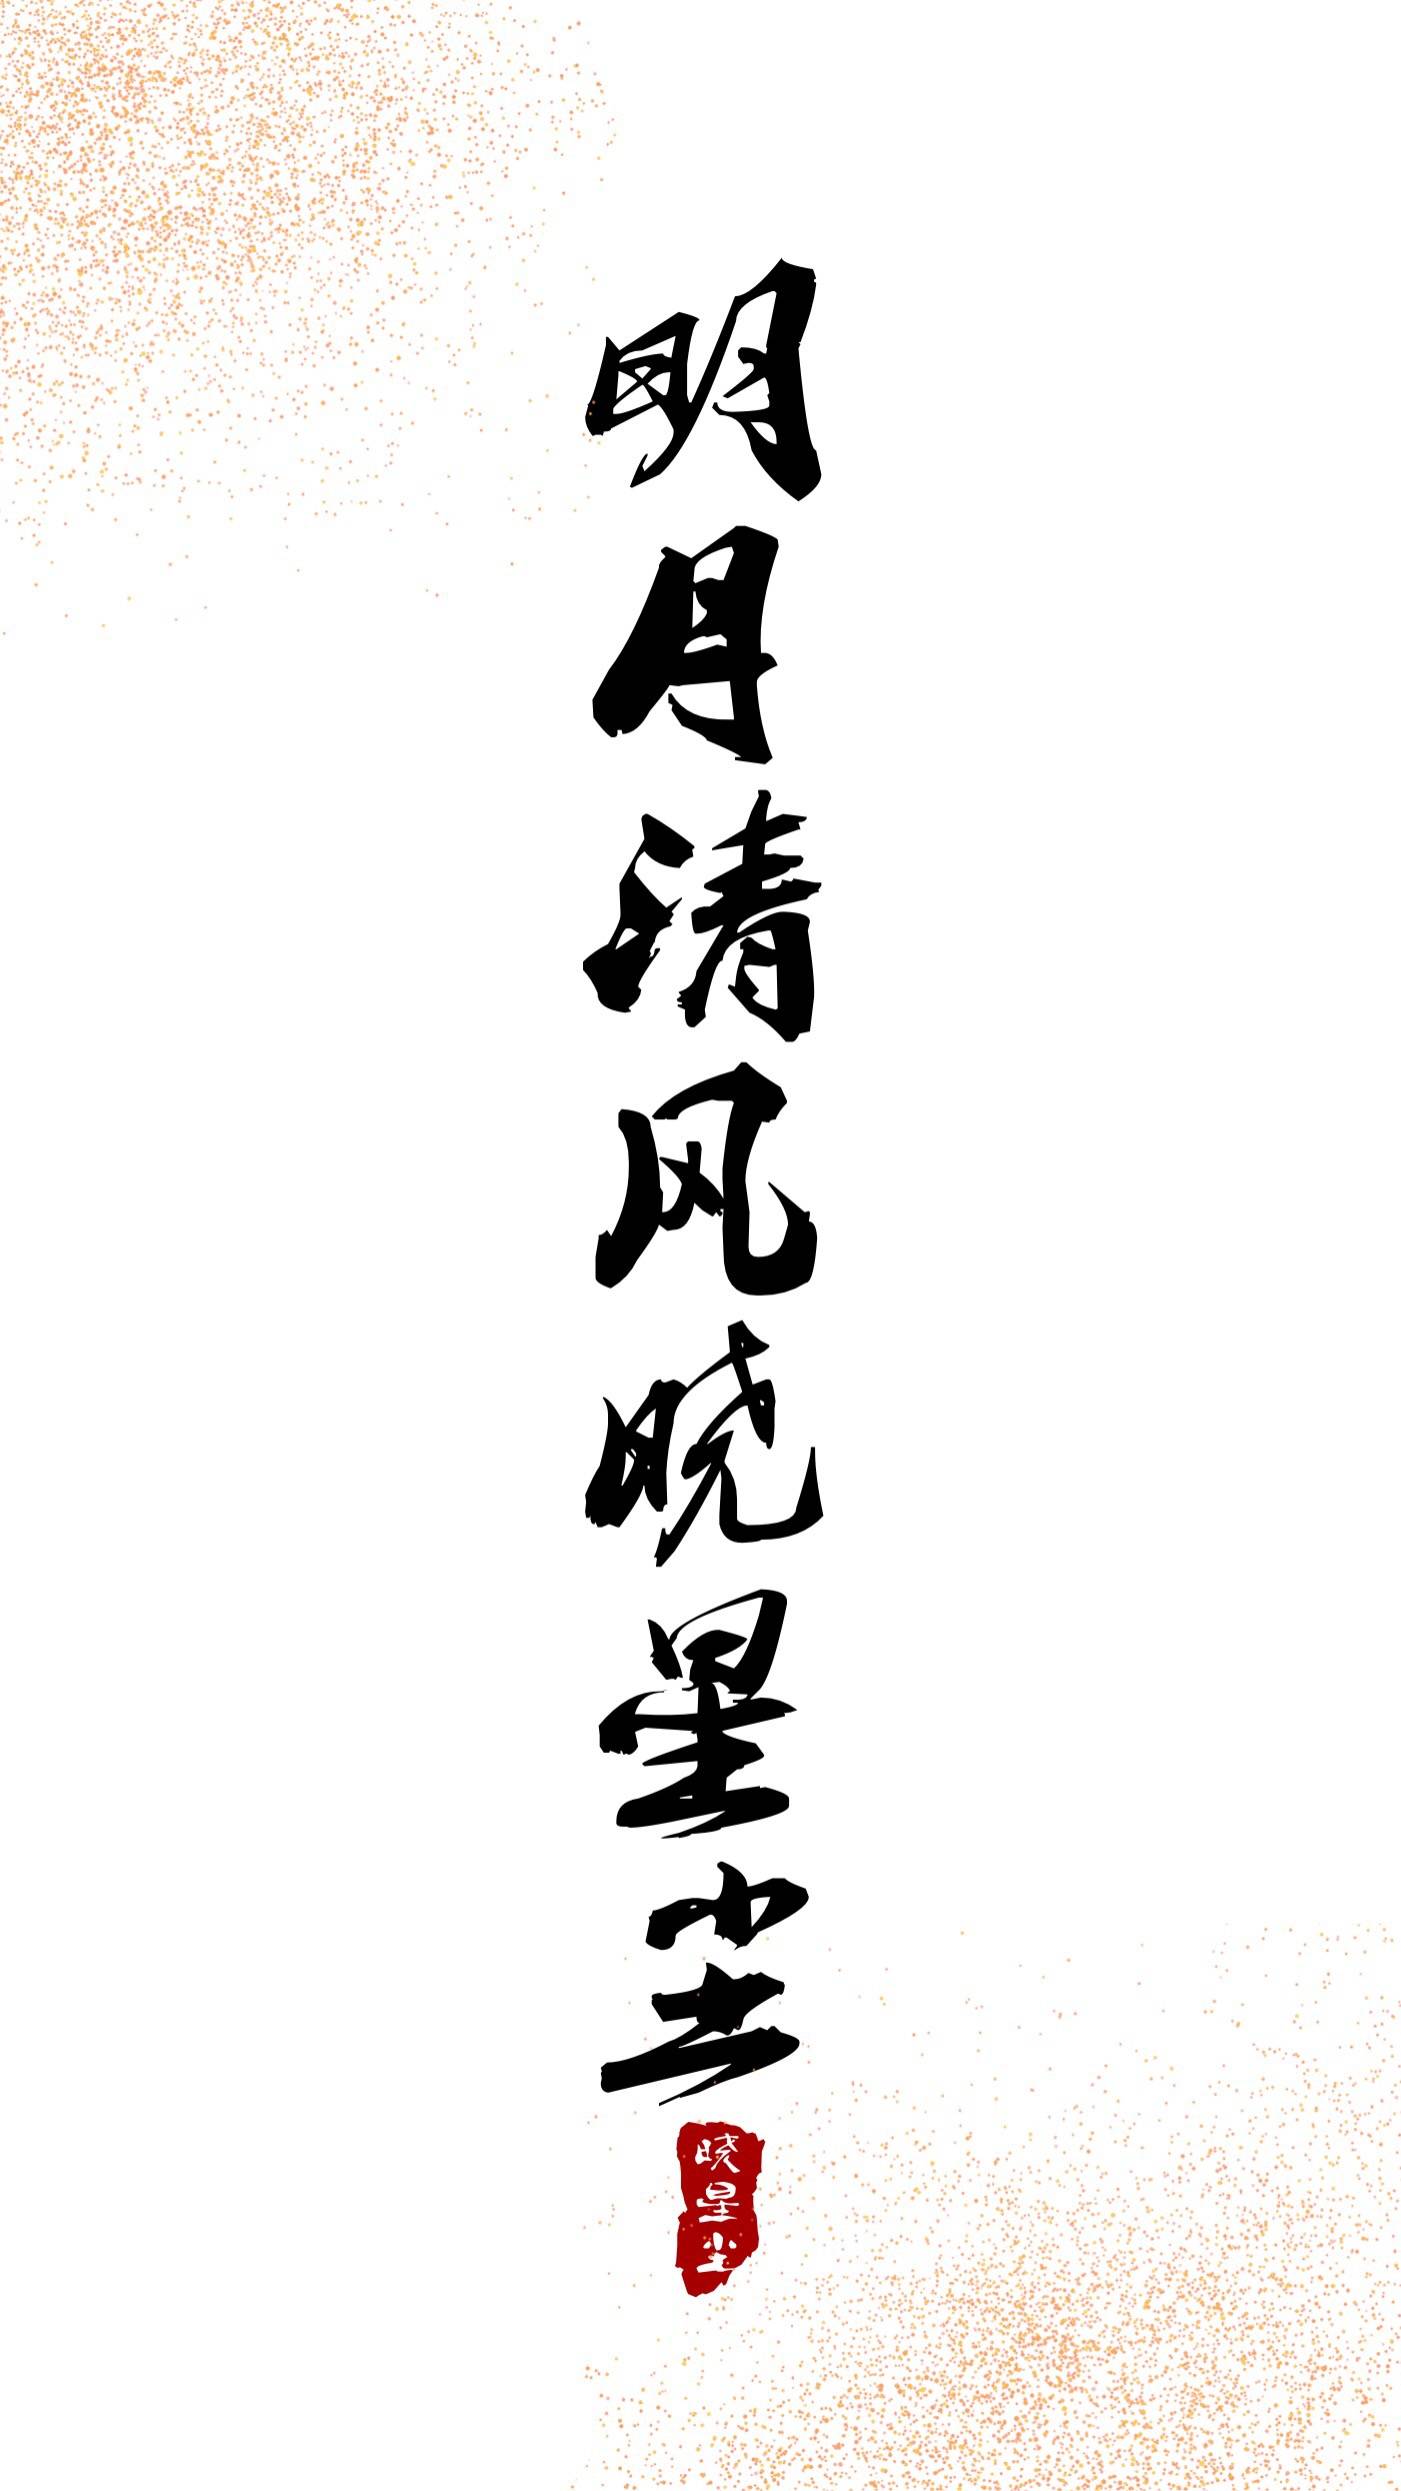 明月清风晓星尘
晓星尘